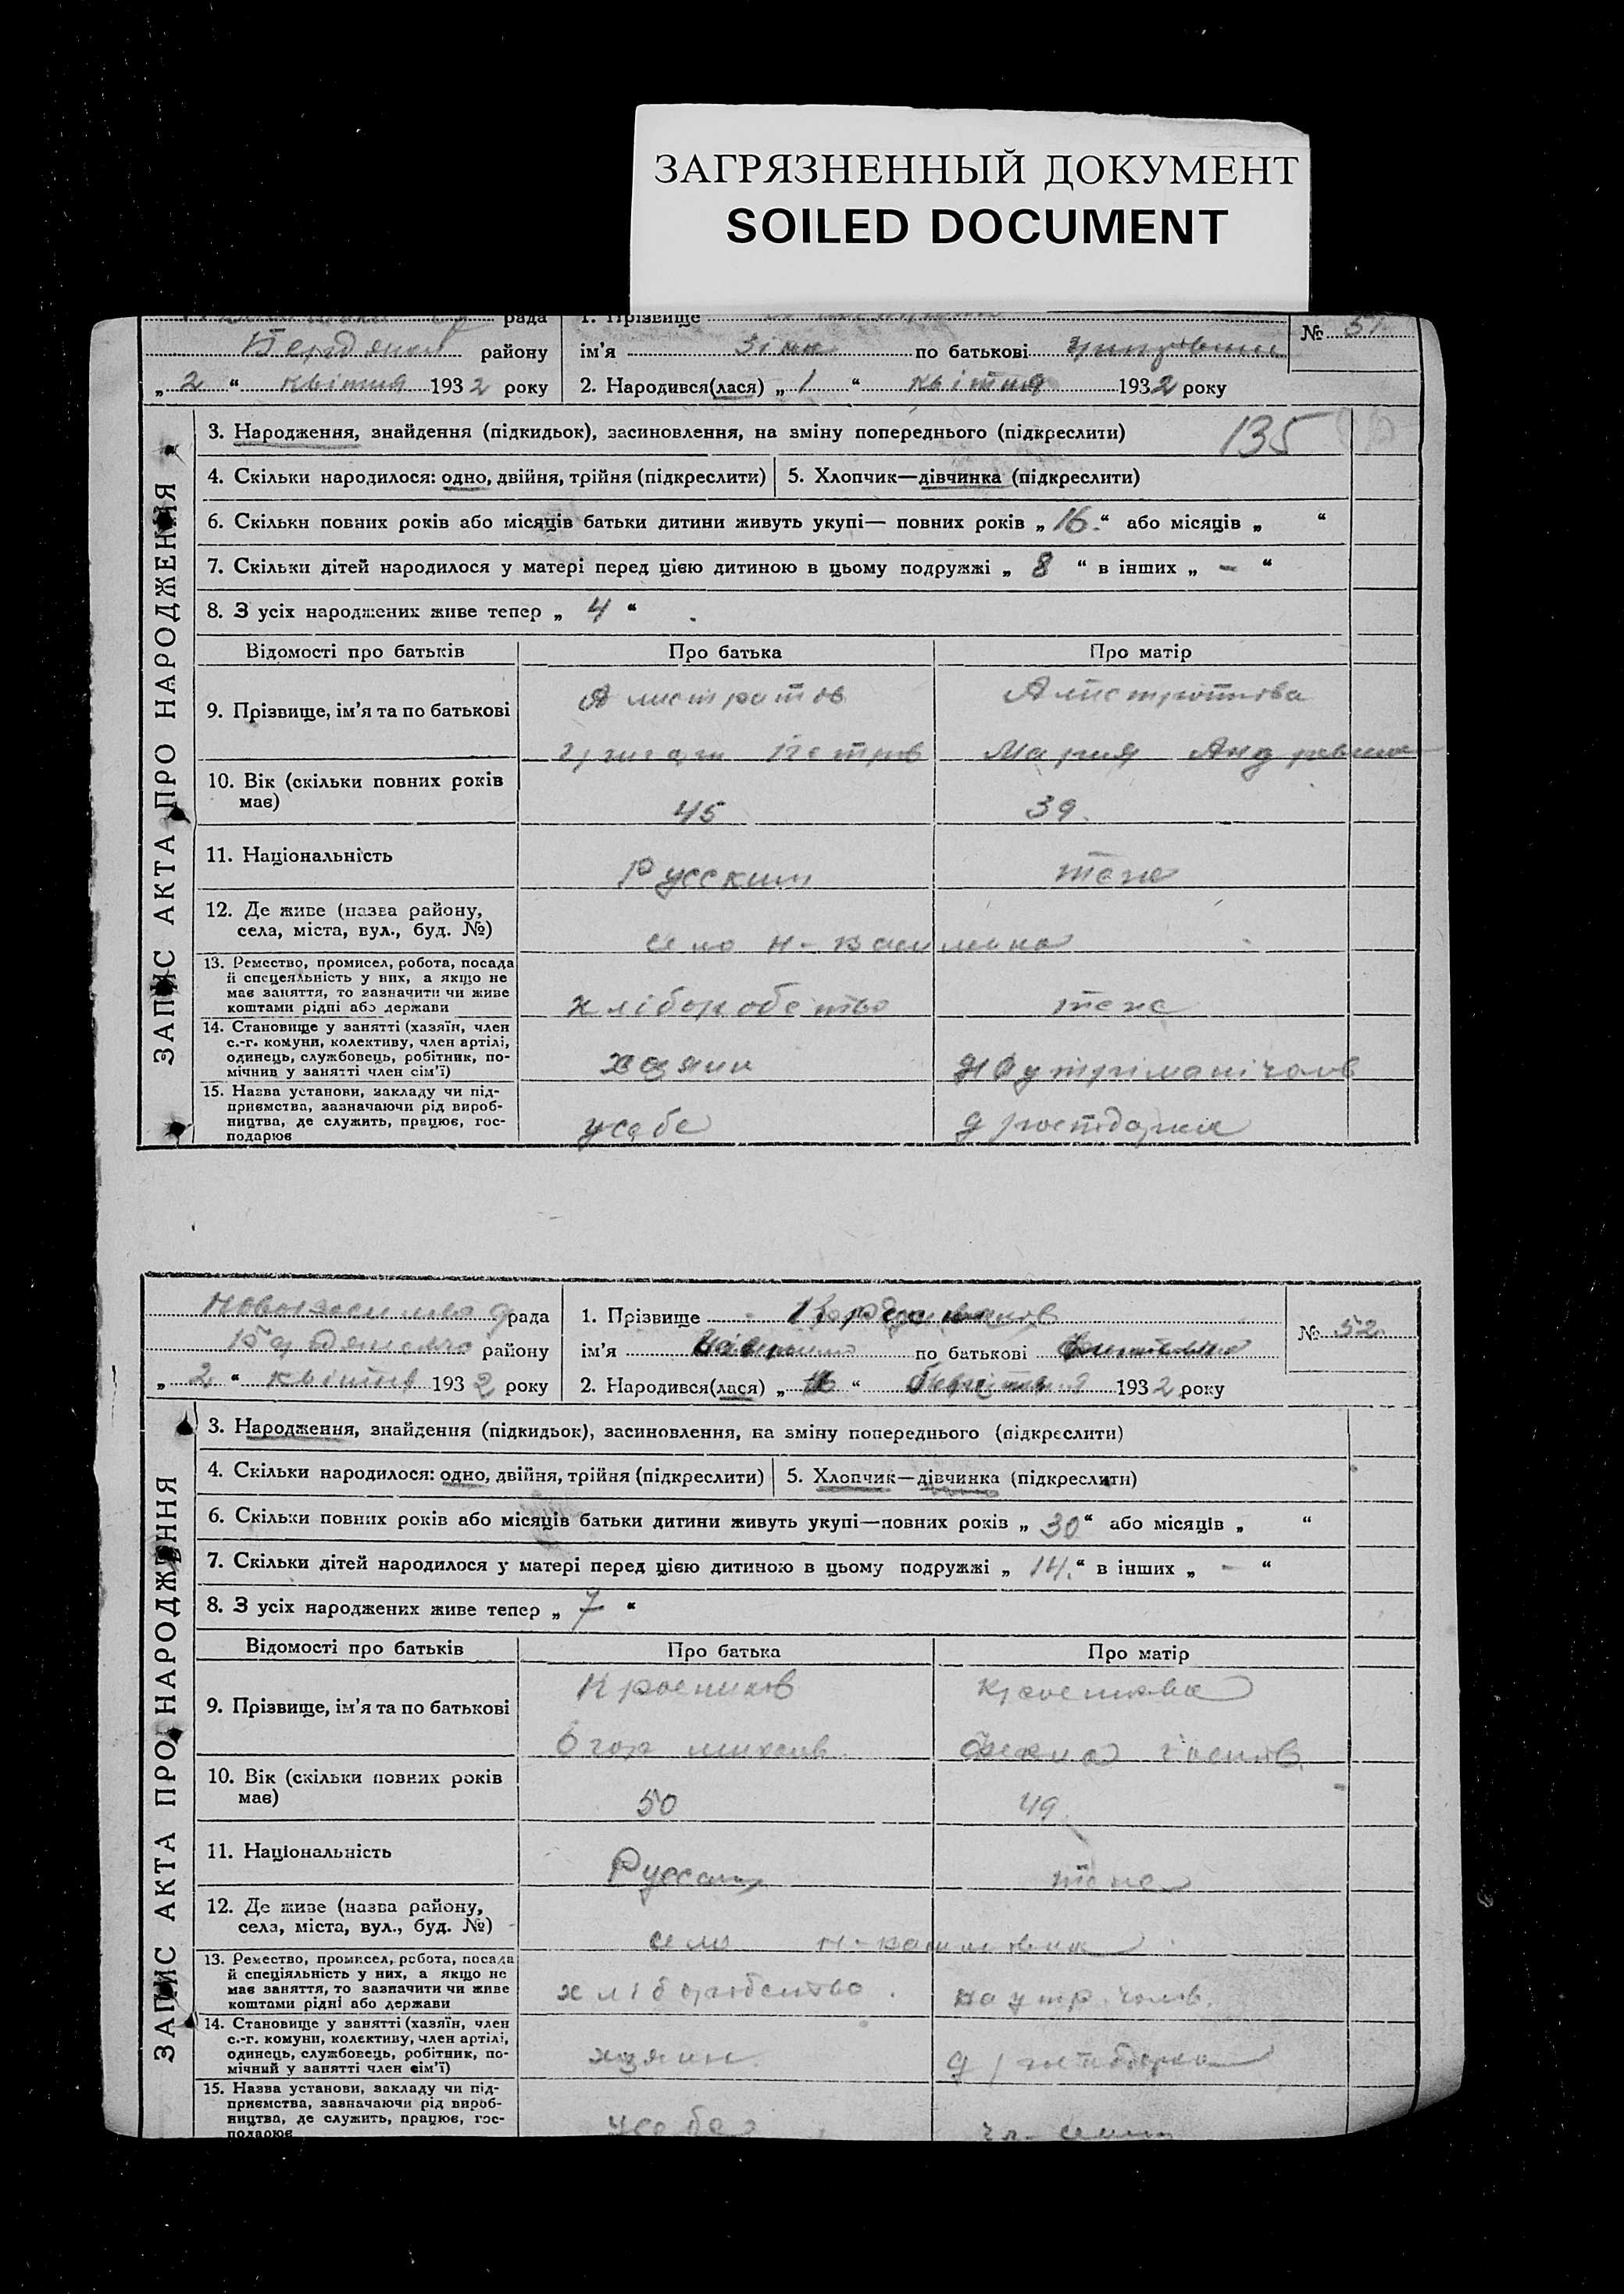 ЗАГРЯЗНЕННЫЙ ДОКУМЕНТ
SOILED DOCUMENT
рада
1. Прізвище
№ 51
району
ім'я Зіна по батькові
„ 2 “ квітня 1932 року
2. Народився(лася) „ 1 “ квітня 1932 року
ЗАПИС АКТА ПРО НАРОДЖЕННЯ
3. Народження, знайдення (підкидьок), засиновлення, на зміну попереднього (підкреслити)
135
4. Скільки народилося: одно, двійня, трійня (підкреслити)
5. Хлопчик—дівчинка (підкреслити)
6. Скільки повних років або місяців батьки дитини живуть укупі— повних років „ 16. “ або місяців „ “
7. Скільки дітей народилося у матері перед цією дитиною в цьому подружжі „ 8 “ в інших „ - “
8. З усіх народжених живе тепер „ 4 “
Відомості про батьків
Про батька
Про матір
9. Прізвище, ім'я та по батькові
Петров
Мария
10. Вік (скільки повних років
має)
45
39.
11. Національність
Русский
тоже
12. Де живе (назва району,
села, міста, вул., буд. №)
село
13. Ремество, промисел, робота, посада
й спецеяльність у них, а якщо не
має заняття, то зазначити чи живе
коштами рідні або держави
хліборобство
тоже
14. Становище у занятті (хазяїн, член
с.-г. комуни, колективу, член артілі,
одинець, службовець, робітник, по-
мічнив у занятті член сім'ї)
хазяин
15. Назва установи, закладу чи під-
приємства, зазначаючи рід вироб-
ництва, де служить, працює, гос-
подарює
усебе
рада
1. Прізвище
№ 52
району
ім'я
по батькові
„ 2 “ квітня 1932 року
2. Народився(лася) „ “ 1932 року
ЗАПИС АКТА ПРО НАРОДЖЕННЯ
3. Народження, знайдення (підкидьок), засиновлення, на зміну попереднього (підкреслити)
4. Скільки народилося: одно, двійня, трійня (підкреслити)
5. Хлопчик—дівчинка (підкреслити)
6. Скільки повних років або місяців батьки дитини живуть укупі—повних років „ 30 “ або місяців „ “
7. Скільки дітей народилося у матері перед цією дитиною в цьому подружжі „ 14. “ в інших „ - “
8. З усіх народжених живе тепер „ 7 “
Відомості про батьків
Про батька
Про матір
9. Прізвище, ім'я та по батькові
10. Вік (скільки повних років
має)
50
49
11. Національність
тоже
12. Де живе (назва району,
села, міста, вул., буд. №)
село
13. Ремество, промисел, робота, посада
й спеціяльність у них, а якщо не
має заняття, то зазначити чи живе
коштами рідні або держави
хліборобство
на утр. чолов.
14. Становище у занятті (хазяїн, член
с.-г. комуни, колективу, член артілі,
одинець, службовець, робітник, по-
мічний у занятті член сім'ї)
15. Назва установи, закладу чи під-
приємства, зазначаючи рід вироб-
ництва, де служить, працює, гос-
подарює
усебе